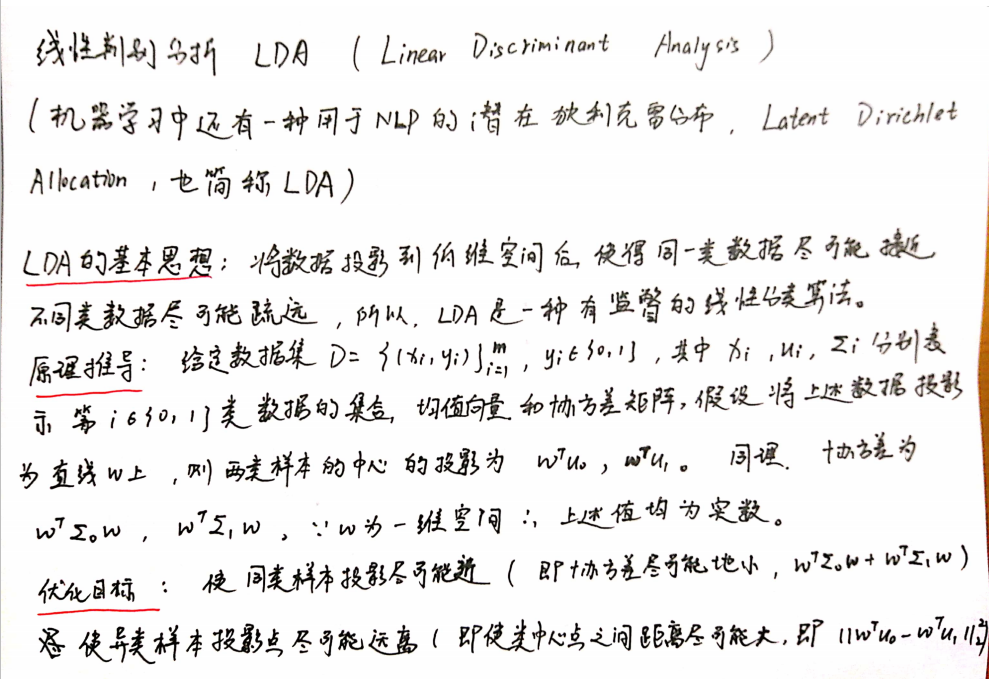 线性判别分析 LDA (Linear Discriminant Analysis)
(机器学习中还有一种用于NLP的潜在狄利克雷分布, Latent Dirichlet
Allocation, 也简称LDA)
LDA的基本思想: 将数据投影到低维空间后, 使得同一类数据尽可能接近
不同类数据尽可能疏远, 所以, LDA是一种有监督的线性分类算法。
原理推导: 给定数据集 D= {(xi, yi)}ᵐᵢ₌₁, yi∈{0,1}, 其中 xi, ui, Σi 分别表
示 第 i∈{0,1} 类数据的集合, 均值向量和协方差矩阵, 假设将上述数据投影
为直线w上, 则两类样本的中心的投影为 wᵀu₀, wᵀu₁。 同理, 协方差为
wᵀΣ₀w, wᵀΣ₁w, ∵ w为一维空间 ∴ 上述值均为实数。
优化目标: 使同类样本投影尽可能近 (即协方差尽可能地小, wᵀΣ₀w + wᵀΣ₁w)
使异类样本投影点尽可能远离 (即使类中心点之间距离尽可能大, 即 ||wᵀu₀ - wᵀu₁||₂²)